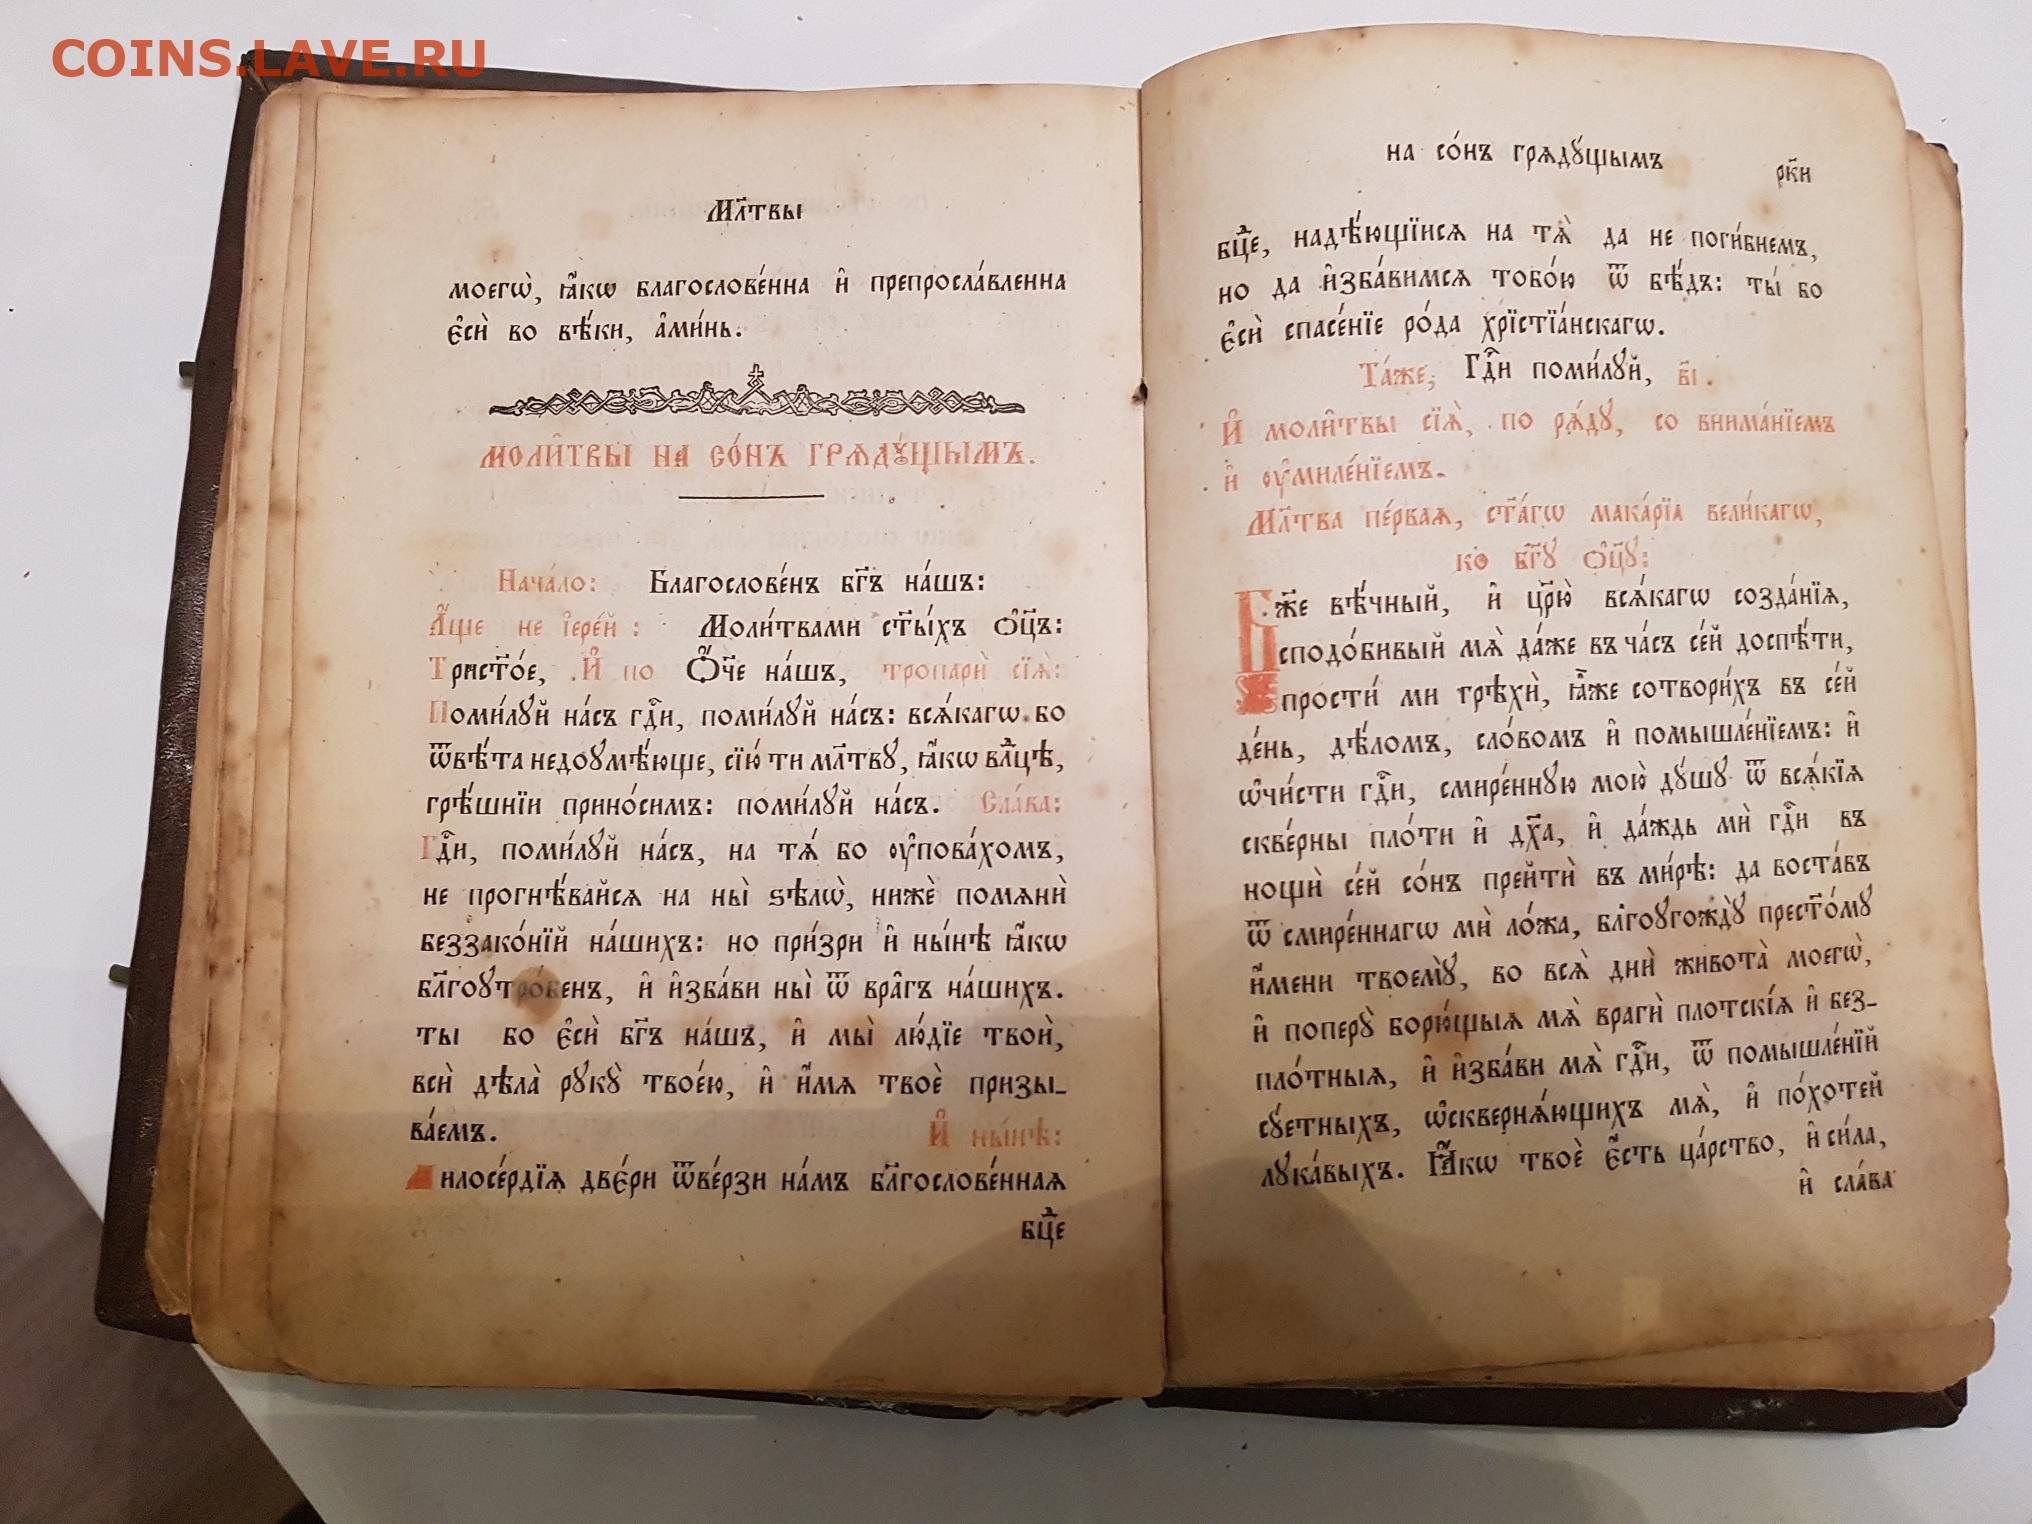 COINS.LAVE.RU
Мл҃твы
моегѡ̀, ꙗ҆́кѡ благослове́нна и҆ препросла́вленна
є҆сѝ во вѣ́ки, а҆ми́нь.
МОЛИ̑ТВЫ НА СО́НЪ ГРѦДꙋ́ЩЫМЪ.
Нача́ло: Благослове́нъ бг҃ъ на́шъ:
А҆́ще не і҆ере́й: Моли́твами ст҃ы́хъ ѻ҆ц҃ъ:
Трист҃о́е, И҆ по Ѻ҆́ч҃е на́шъ, тропарѝ сїѧ̀:
Поми́лꙋй на́съ гдⷭ҇и, поми́лꙋй на́съ: всѧ́кагѡ бо
ѿвѣ́та недоꙋмѣ́юще, сїю́ ти мл҃твꙋ, ꙗ҆́кѡ влⷣцѣ,
грѣ́шнїи прино́симъ: поми́лꙋй на́съ. Сла́ва:
Гдⷭ҇и, поми́лꙋй на́съ, на тѧ́ бо ᲂу҆пова́хомъ,
не прогнѣ́вайсѧ на ны̀ ѕѣлѡ̀, нижѐ помѧнѝ
беззако́нїй на́шихъ: но при́зри и҆ ны́нѣ ꙗ҆́кѡ
бл҃гоꙋтро́бенъ, и҆ и҆зба́ви ны̀ ѿ вра̑гъ на́шихъ.
ты бо є҆сѝ бг҃ъ на́шъ, и҆ мы̀ лю́дїе твоѝ,
всѝ дѣла̀ рꙋкꙋ̀ твоє́ю, и҆ и҆́мѧ твоѐ призы-
ва́емъ. И҆ ны́нѣ:
Милосе́рдїѧ две́ри ѿве́рзи на́мъ бл҃гослове́ннаѧ
бцⷣе
на со́нъ грѧдꙋ́щымъ
рк҃и
бцⷣе, надѣ́ющїисѧ на тѧ̀ да не поги́бнемъ,
но да и҆зба́вимсѧ тобо́ю ѿ бѣ́дъ: ты́ бо
є҆сѝ спасе́нїе ро́да хрїстїа́нскагѡ.
Та́же, Гдⷭ҇и поми́лꙋй, в҃і.
И҆ моли̑твы сїѧ̀, по рѧ́дꙋ, со внима́нїемъ
и҆ ᲂу҆миле́нїемъ.
Мл҃тва пе́рваѧ, ст҃а́гѡ мака́рїа вели́кагѡ,
ко бг҃ꙋ ѻ҆ц҃ꙋ:
Бж҃е вѣ́чный, и҆ цр҃ю̀ всѧ́кагѡ созда́нїѧ,
сподо́бивый мѧ̀ да́же въ ча́съ се́й доспѣ́ти,
прости́ ми грѣхѝ, ꙗ҆̀же сотвори́хъ въ се́й
де́нь, дѣ́ломъ, сло́вомъ и҆ помышле́нїемъ: и҆
ѡ҆чи́сти гдⷭ҇и, смире́ннꙋю мою̀ дꙋ́шꙋ ѿ всѧ́кїѧ
скве́рны пло́ти и҆ дх҃а, и҆ да́ждь мѝ гдⷭ҇и въ
нощѝ се́й со́нъ прейтѝ въ ми́рѣ: да воста́въ
ѿ смире́ннагѡ мѝ ло́жа, бл҃гоꙋгождꙋ̀ прест҃о́мꙋ
и҆́мени твоемꙋ̀, во всѧ̀ днѝ живота̀ моегѡ̀,
и҆ поперꙋ̀ борю́щыѧ мѧ̀ врагѝ плотскі́ѧ и҆ без-
пло́тныѧ, и҆ и҆зба́ви мѧ̀ гдⷭ҇и, ѿ помышле́нїй
сꙋ́етныхъ, ѡ҆сквернѧ́ющихъ мѧ̀, и҆ по́хотей
лꙋка́выхъ. Ꙗ҆́кѡ твоѐ є҆́сть ца́рство, и҆ си́ла,
и҆ сла́ва